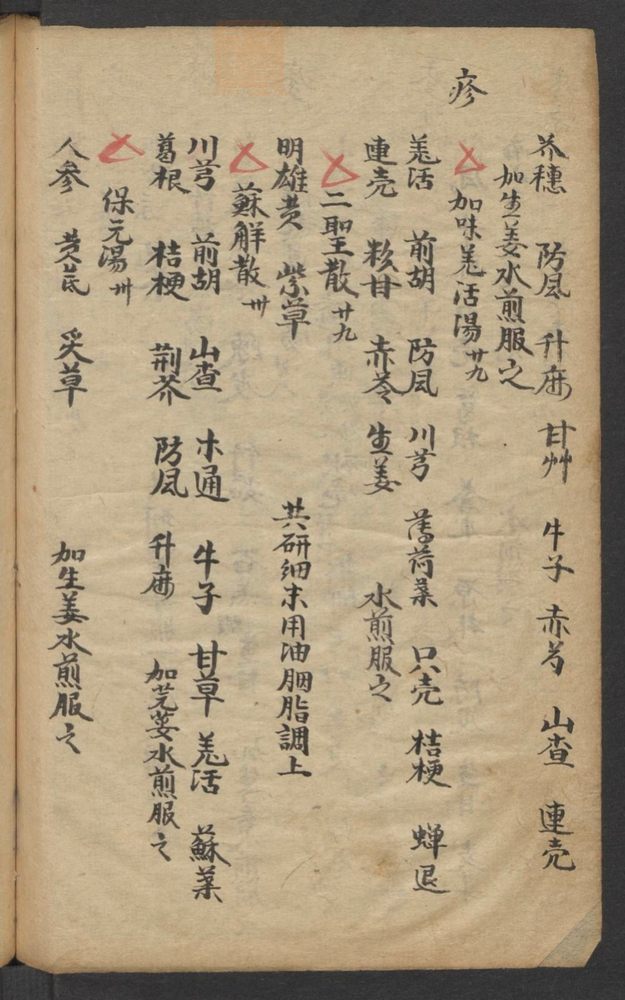 疹
芥穗 防風 升麻 甘艸 牛子 赤芍 山查 連壳
加生姜水煎服之
加味羌活湯 廿九
羌活 前胡 防風 川芎 薄荷葉 只壳 桔梗 蟬退
連壳 粉甘 赤苓 生姜 水煎服之
二聖散 廿九
明雄黄 紫草 共研細末用油胭脂調上
蘇解散 卅
川芎 前胡 山查 木通 牛子 甘草 羌活 蘇葉
葛根 桔梗 荆芥 防風 升麻 加芫荽水煎服之
保元湯 卅
人參 黄芪 炙草 加生姜水煎服之